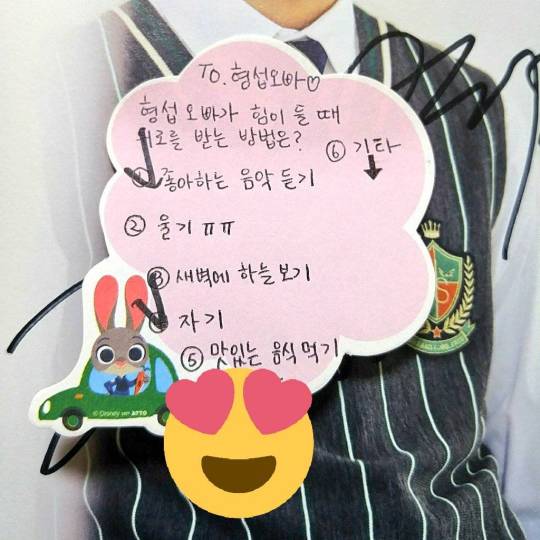 To. 형섭오빠♡
형섭 오빠가 힘이 들 때
위로를 받는 방법은?
① 좋아하는 음악 듣기
② 울기 ㅠㅠ
③ 새벽에 하늘 보기
④ 자기
⑤ 맛있는 음식 먹기
⑥ 기타
© Disney